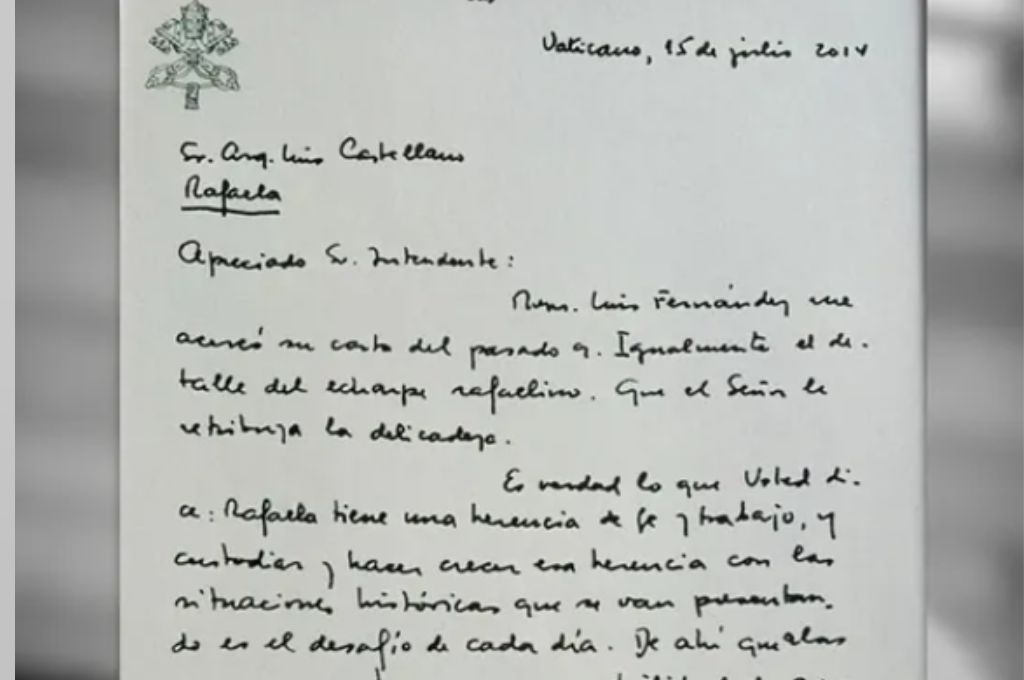 Vaticano, 15 de julio 2014
Sr. Arq. Luis Castellano
Rafaela
Apreciado Sr. Intendente:
Mons. Luis Fernández me
acercó su carta del pasado 9. Igualmente el de-
talle del echarpe rafaelino. Que el Señor le
retribuya la delicadeza.
Es verdad lo que Usted di-
ce: Rafaela tiene una herencia de fe y trabajo, y
custodiar y hacer crecer esa herencia con las
situaciones históricas que se van presentan-
do es el desafío de cada día. De ahí que